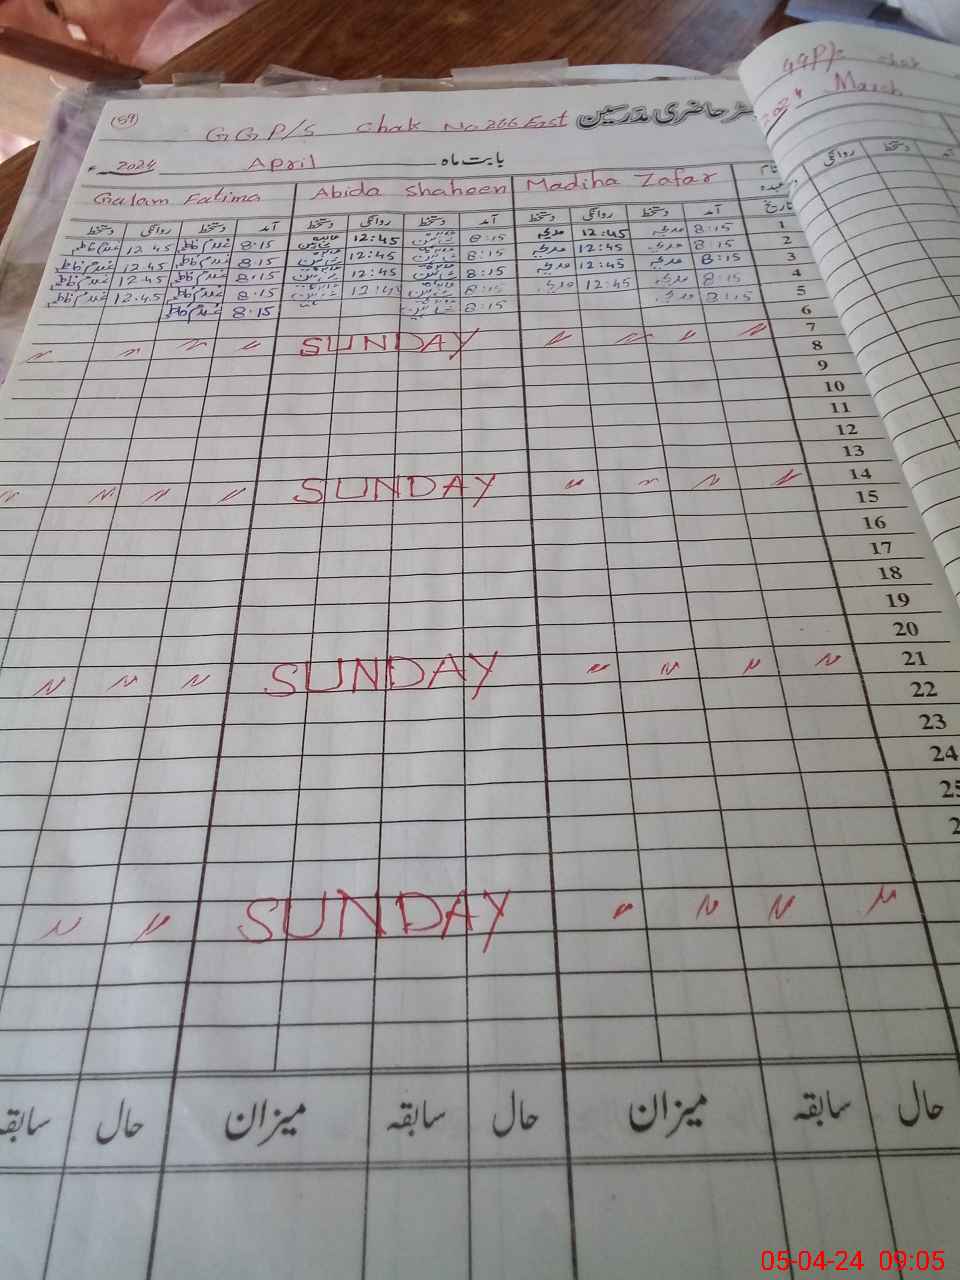 (59)
GGP/S Chak No 266 East رجسٹر حاضری مدرسین
بابت ماہ April 2024
نام
عہدہ
Madiha Zafar Abida Shaheen Gulam Fatima
تاریخ آمد دستخط روانگی دستخط آمد دستخط روانگی دستخط آمد دستخط روانگی دستخط
1 8:15 مدیحہ 12:45 مدیحہ 8:15 عابدہ شاہین 12:45 عابدہ شاہین 8:15 غلام فاطمہ 12:45 غلام فاطمہ
2 8:15 مدیحہ 12:45 مدیحہ 8:15 عابدہ شاہین 12:45 عابدہ شاہین 8:15 غلام فاطمہ 12:45 غلام فاطمہ
3 8:15 مدیحہ 12:45 مدیحہ 8:15 عابدہ شاہین 12:45 عابدہ شاہین 8:15 غلام فاطمہ 12:45 غلام فاطمہ
4 8:15 مدیحہ 12:45 مدیحہ 8:15 عابدہ شاہین 12:45 عابدہ شاہین 8:15 غلام فاطمہ 12:45 غلام فاطمہ
5 8:15 مدیحہ 8:15 عابدہ شاہین 8:15 غلام فاطمہ
6
7 〃 〃 〃 〃 SUNDAY 〃 〃 〃 〃
8
9
10
11
12
13
14 〃 〃 〃 〃 SUNDAY 〃 〃 〃 〃
15
16
17
18
19
20
21 〃 〃 〃 〃 SUNDAY 〃 〃 〃
22
23
24
25
2
〃 〃 〃 〃 SUNDAY 〃 〃
حال سابقہ میزان حال سابقہ میزان حال سابقہ
GGP/S Chak
March 2024
روانگی دستخط آمد
05-04-24 09:05